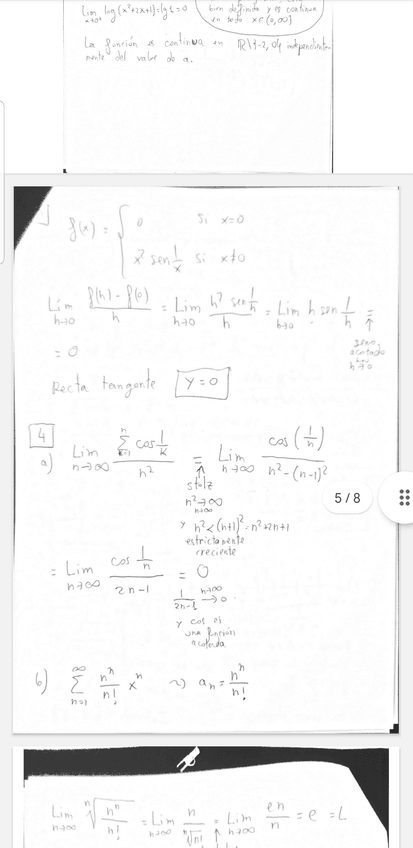 Lim x→0+ log (x²+2x+1) = lg 1 = 0
bien definida y es continua
en todo x∈(0,∞)
La función es continua en ℝ\{-2,0} independiente-
mente del valor de a.
f(x) = { 0 si x=0
x² sen 1/x si x≠0
Lim h→0 (f(h) - f(0))/h = Lim h→0 (h² sen 1/h)/h = Lim h→0 h sen 1/h =
seno
acotado
h→0
= 0
Recta tangente y=0
4
a) Lim n→∞ (∑ k=1 n cos 1/k)/n² = Lim n→∞ cos(1/n)/(n²-(n-1)²)
stolz
n²→∞
n→∞
y n²<(n+1)²=n²+2n+1
estrictamente
creciente
5/8
= Lim n→∞ (cos 1/n)/(2n-1) = 0
1/(2n-1) n→∞ → 0
y cos es
una función
acotada
b) ∑ n=1 ∞ nⁿ/n! xⁿ ⤳ aₙ = nⁿ/n!
Lim n→∞ ⁿ√(nⁿ/n!) = Lim n→∞ n/ⁿ√n! = Lim n→∞ en/n = e = L